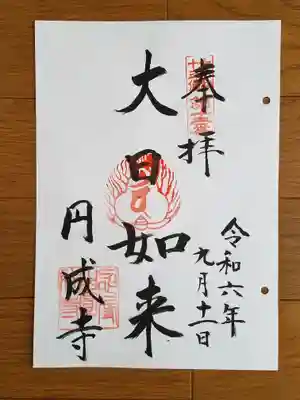 奉拝
令和六年
九月十一日
大日如来
円成寺